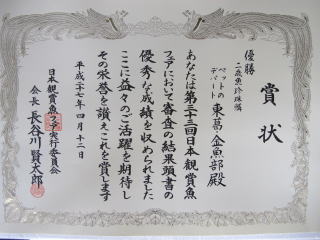 賞状
優勝
二歳魚 珍珠鱗
ペットの
デパート
東葛金魚部殿
あなたは第三十三回日本観賞魚
フェアにおいて審査の結果頭書の
優秀な成績を収められました
ここに益々のご活躍を期待し
その栄誉を讃えこれを賞します
平成二十七年四月十二日
日本観賞魚フェア実行委員会
会長 長谷川賢太郎